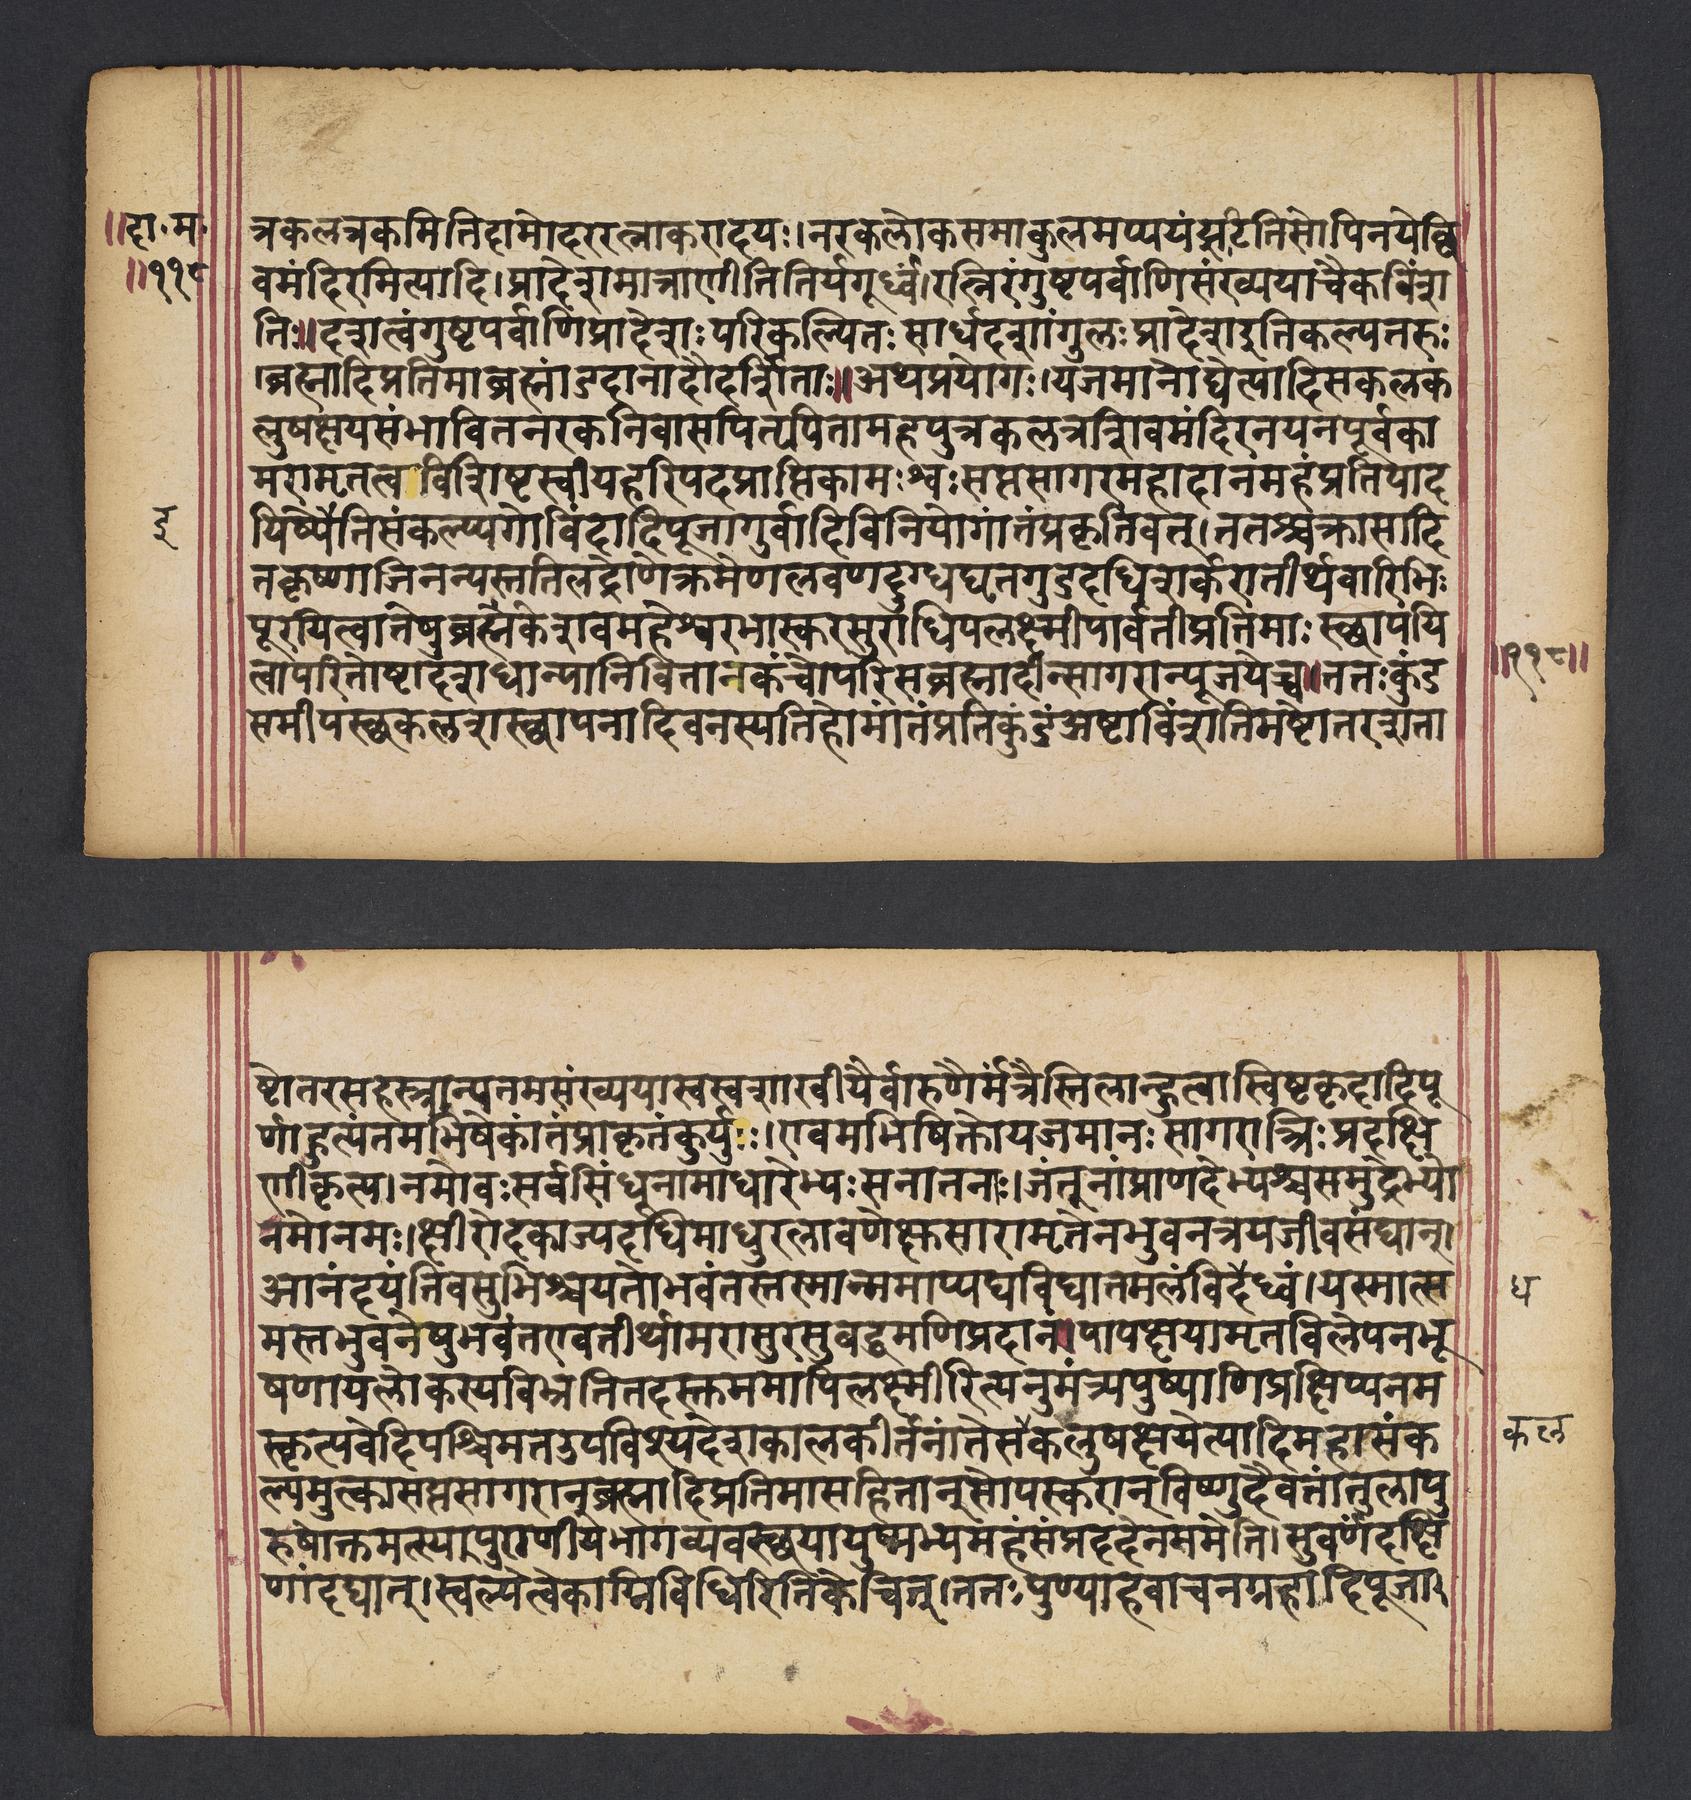 ॥दा॰म॰
॥११८
त्रकलत्रकमितिदामोदररत्नाकरादयः।नरकलोकसमाकुलमप्ययंझटितिसोपिनयेच्छि
वमंदिरमित्यादि।प्रादेशमात्राणीतितिर्यगूर्ध्वं।रत्निरंगुष्टपर्वाणिसंख्ययाचैकविंशा
तिः॥दशत्वंगुष्टपर्वाणिप्रादेशःपरिकल्पितःसार्धदशांगुलःप्रादेशइतिकल्पतरुः
।ब्रह्मादिप्रतिमाब्रह्मांडदानादौदर्शिताः॥अथप्रयोगः।यजमानोद्येत्यादिसकलक
लुषक्षयसंभावितनरकनिवासपितृपितामहपुत्रकलत्रशिवमंदिरनयनपूर्वका
मरामृतत्वविशिष्टस्वीयहरिपदप्राप्तिकामःश्वःसप्तसागरमहादानमहंप्रतिपाद
यिष्यैतिसंकल्प्यगोविंदादिपूजागुर्वादिविनियोगांतंप्रकृतिवत्।ततश्चक्रासादि
इ
तकृष्णाजिनन्यस्ततिलद्रोणेक्रमेणलवणदुग्धघृतगुडदधिशर्करातीर्थवारिभिः
पूरयित्वातेषुब्रह्मकेशवमहेश्वरभास्करसुराधिपलक्ष्मीपार्वतीप्रतिमाःस्छापयि
त्वापरितोष्टादशधान्यानिवितानकंचोपरिसब्रह्मादीन्सागरान्पूजयेच्च॥ततःकुंड
॥११८॥
समीपस्छकलशस्छापनादिवनस्पतिहोमांतंप्रतिकुंडंअष्टाविंशतिमष्टोतरशता
ष्टोतरसहस्त्रान्यतमसंख्ययास्वस्वशाखीयैर्वारुणैर्मंत्रैस्तिलान्हुत्वास्विष्टकृदादिपू
र्णाहुत्यंतमभिषेकांतंप्राकृतंकुर्युः।एवमभिषिक्तोयजमानःसागरान्त्रिःप्रदक्षि
णीकृत्य।नमोवःसर्वसिंधूनामाधारेभ्यःसनातनाः।जंतूनांप्राणदेभ्यश्चसमुद्रेभ्यो
नमोनमः।क्षीरोदकाज्यदधिमाधुरलावणेक्षुसारामृतेनभुवनत्रयजीवसंघान्।
आनंदयंतिवसुभिश्चयतोभवंतस्तस्मान्ममाप्यघविघातमलंविदेध्वं।यस्मात्स
ध
मस्तभुवनेषुभवंतएवतीर्थामरासुरसुबद्धमणिप्रदानं।पापक्षयामृतविलेपनभू
षणायलोकस्यबिभ्रतितदस्तुममापिलक्ष्मीरित्यनुमंत्र्यपुष्पाणिप्रक्षिप्यनम
स्कृत्यवेदिपश्चिमतउपविश्यदेशकालकीर्तनांतेसकलुषक्षयेत्यादिमहासंक
कल
ल्पमुत्कासप्तसागरान्ब्रह्मादिप्रतिमासहितान्सोपस्करान्विष्णुदैवतांतुलापु
रुषोक्तमत्स्यपुराणीयभागव्यवस्छयायुष्मभ्यमहंसंप्रददेनममेति।सुवर्णदक्षि
णांदद्यात्।स्वल्पेत्वेकाग्निविधिरितिकेचित्।ततःपुण्याहवाचनग्रहादिपूजा